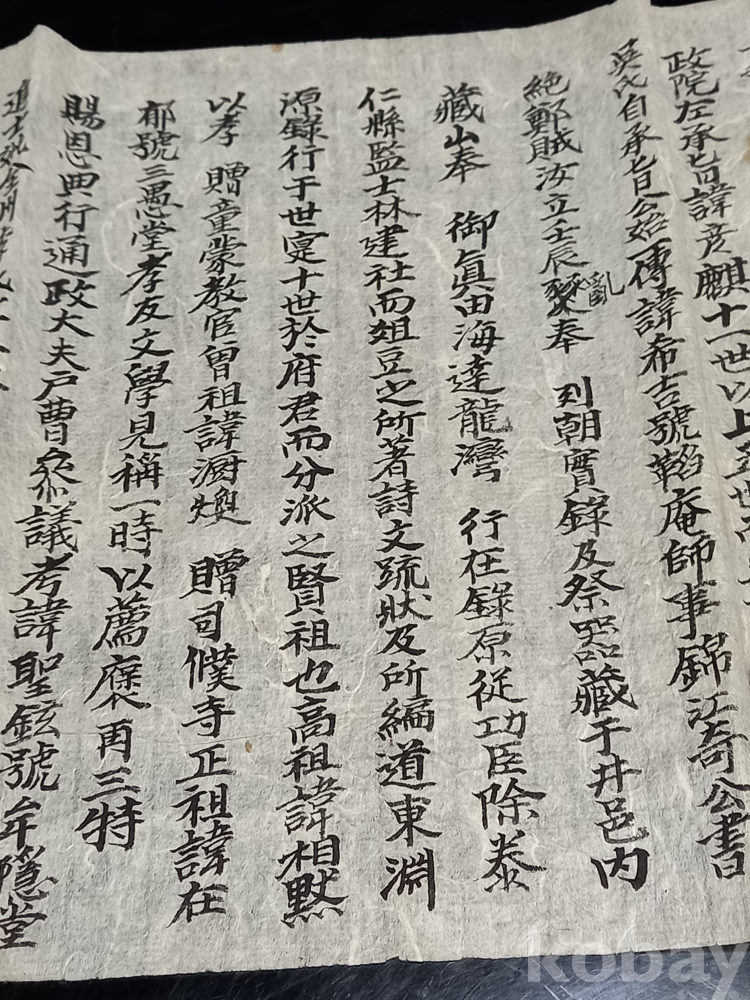 政院左承旨諱彦麒十一世以上至
吳氏自承旨公始傳諱希吉號韜庵師事錦江奇公書
絶鄭賊汝立壬辰亂奉 列朝實錄及祭器藏于井邑內
藏山奉 御眞由海達龍灣 行在錄原從功臣除泰
仁縣監士林建社而俎豆之所著詩文疏狀及所編道東淵
源錄行于世寔十世於府君而分派之賢祖也高祖諱相默
以孝 贈童蒙敎官曾祖諱澍煥 贈司僕寺正祖諱在
郁號三愚堂孝友文學見稱一時以薦褒再三特
賜恩典行通政大夫戶曹叅議考諱聖鉉號牟隱堂
kobay